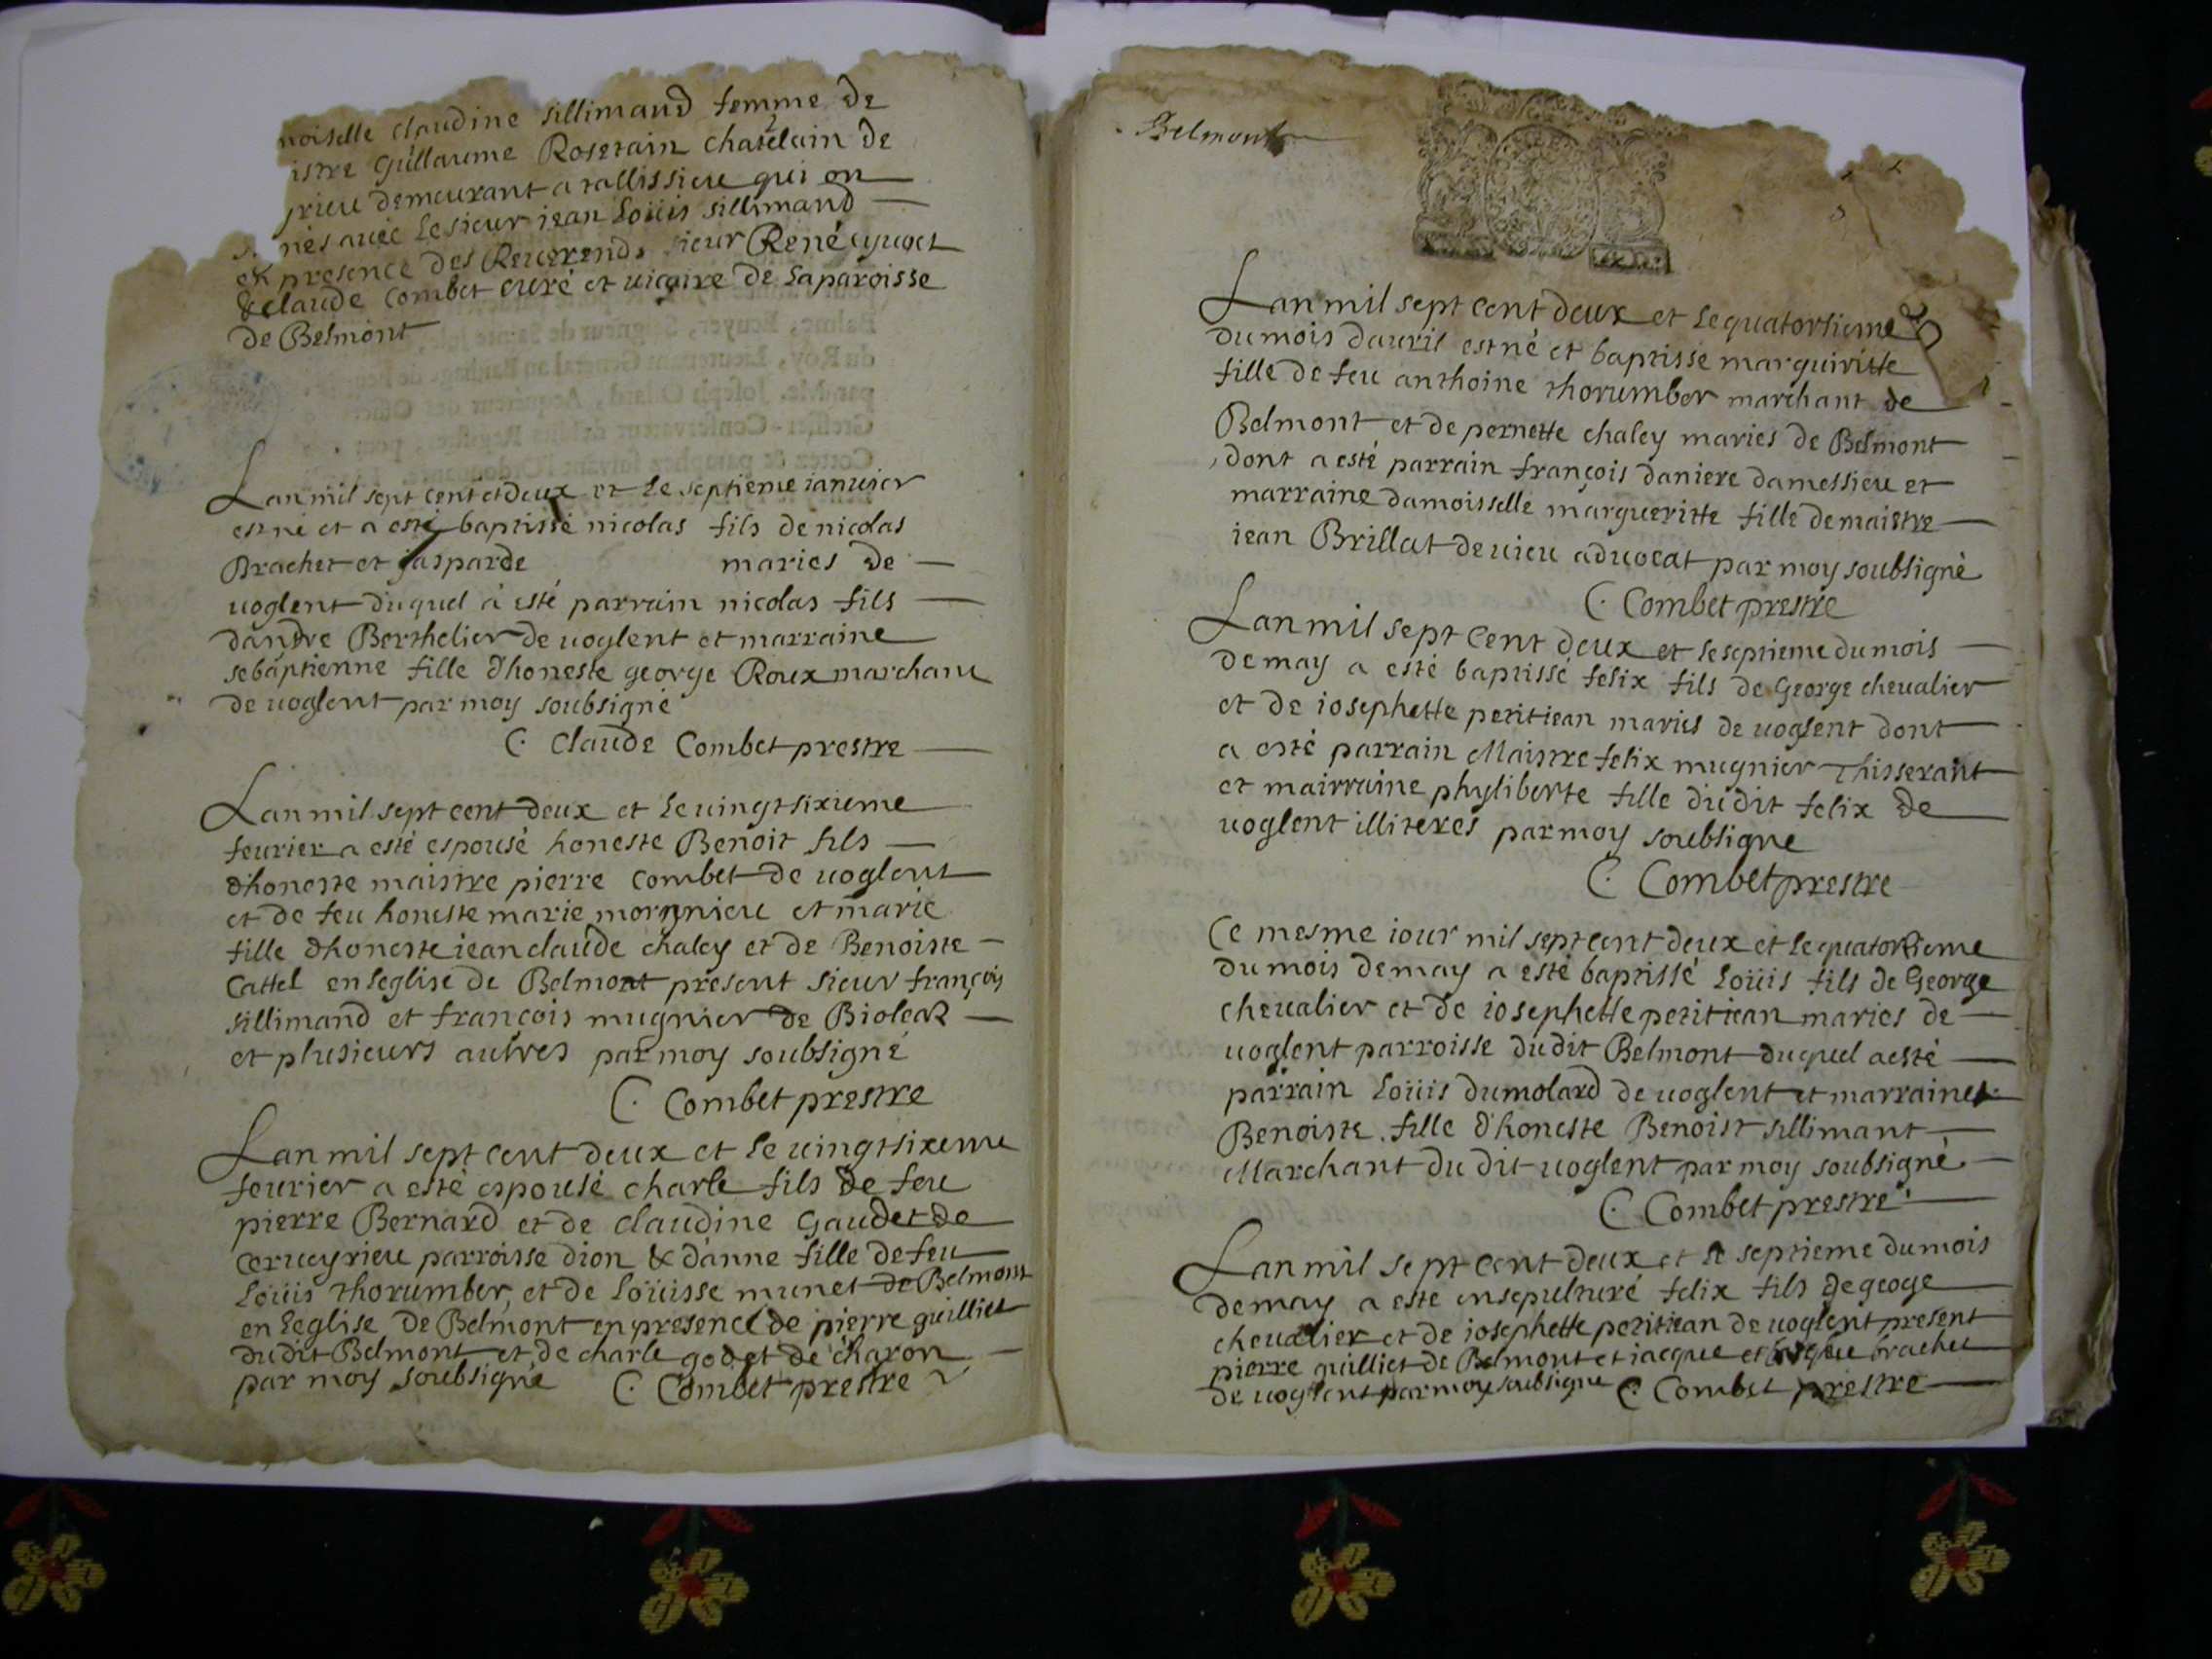 noiselle claudine sillimand femme de
istre Guillaume Roserain chatelain de
rieu demeurant a tallissieu qui on
nés avec le sieur iean Loüis sillimand
en presence des Reverends sieur René
& claude Combet curé et vicaire de la paroisse
de Belmont
Lan mil sept cent et deux et le septieme ianuier
est né et a esté baptissé nicolas fils de nicolas
Brachet et gasparde maries de
uoglent duquel a esté parrain nicolas fils
dandre Berthelier de uoglent et marraine
sebaptienne fille dhoneste george Roux marchant
de uoglent par moy soubsigné
C. Claude Combet prestre
Lan mil sept cent deux et le uingt sixieme
feurier a esté espousé honeste Benoit fils
dhoneste maistre pierre combet de uoglent
et de feu honeste marie mornieu et marie
fille dhoneste iean claude chaley et de Benoiste
Cattel en leglise de Belmont present sieur françois
sillimand et françois mugnier de Bioleaz
et plusieurs autres par moy soubsigné
C. Combet prestre
Lan mil sept cent deux et le uingt sixeme
feurier a esté espousé charle fils de feu
pierre Bernard et de claudine Gaudet de
cerueyrieu parroisse dion & danne fille de feu
Loüis thorumber, et de Loüisse munet de Belmont
en leglise de Belmont en presence de pierre guilliet
dudit Belmont et de charle godet de charon
par moy soubsigné C. Combet prestre
Belmont
Lan mil sept cent deux et le quatorsieme
du mois dauril est né et baptissé marguiritte
fille de feu anthoine thorumber marchant de
Belmont et de pernette chaley maries de Belmont
dont a esté parrain françois daniere damessieu et
marraine damoisselle margueritte fille de maistre
iean Brillat de uieu aduocat par moy soubsigné
C. Combet prestre
Lan mil sept cent deux et le septieme du mois
de may a esté baptissé felix fils de George cheualier
et de iosephette petitiean maries de uoglent dont
a esté parrain Maistre felix mugnier Thisserant
et mairraine phyliberte fille dudit felix de
uoglent illiteres par moy soubsigne
C. Combet prestre
Ce mesme iour mil sept cent deux et le quatorsieme
du mois de may a esté baptissé Loüis fils de George
cheualier et de iosephette petitiean maries de
uoglent parroisse dudit Belmont duquel a esté
parrain Loüis dumolard de uoglent et marraine
Benoiste fille d'honeste Benoist sillimant
Marchant du dit uoglent par moy soubsigné
C. Combet prestre
Lan mil sept cent deux et le septieme du mois
de may a esté ensepulturé felix fils de geoge
cheualier et de iosephette petitiean de uoglent present
pierre guilliet de Belmont et iacque et brachet
de uoglent par moy soubsigne C. Combet prestre